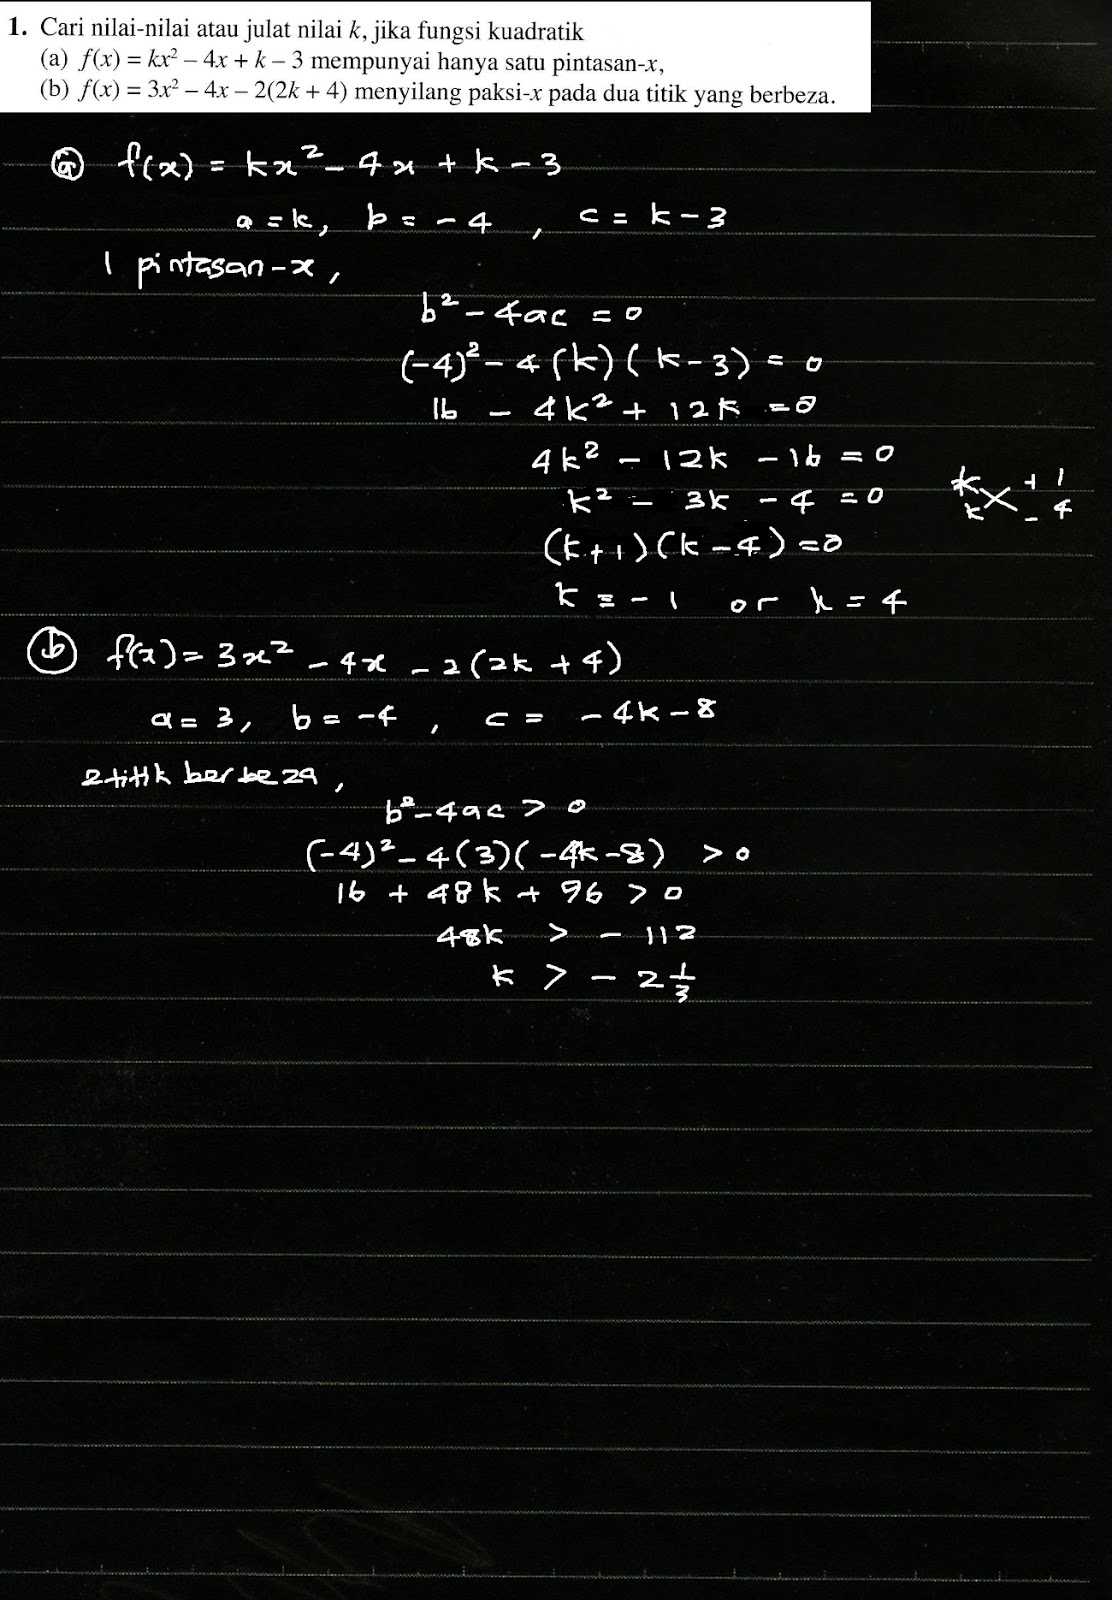 1. Cari nilai-nilai atau julat nilai k, jika fungsi kuadratik
(a) f(x) = kx² – 4x + k – 3 mempunyai hanya satu pintasan-x,
(b) f(x) = 3x² – 4x – 2(2k + 4) menyilang paksi-x pada dua titik yang berbeza.
(a) f(x) = kx² - 4x + k - 3
a = k, b = -4, c = k - 3
1 pintasan-x,
b² - 4ac = 0
(-4)² - 4(k)(k-3) = 0
16 - 4k² + 12k = 0
4k² - 12k - 16 = 0
k² - 3k - 4 = 0
k +1
k -4
(k+1)(k-4) = 0
k = -1 or k = 4
(b) f(x) = 3x² - 4x - 2(2k + 4)
a = 3, b = -4, c = -4k - 8
2 titik berbeza,
b² - 4ac > 0
(-4)² - 4(3)(-4k-8) > 0
16 + 48k + 96 > 0
48k > -112
k > -2 1/3